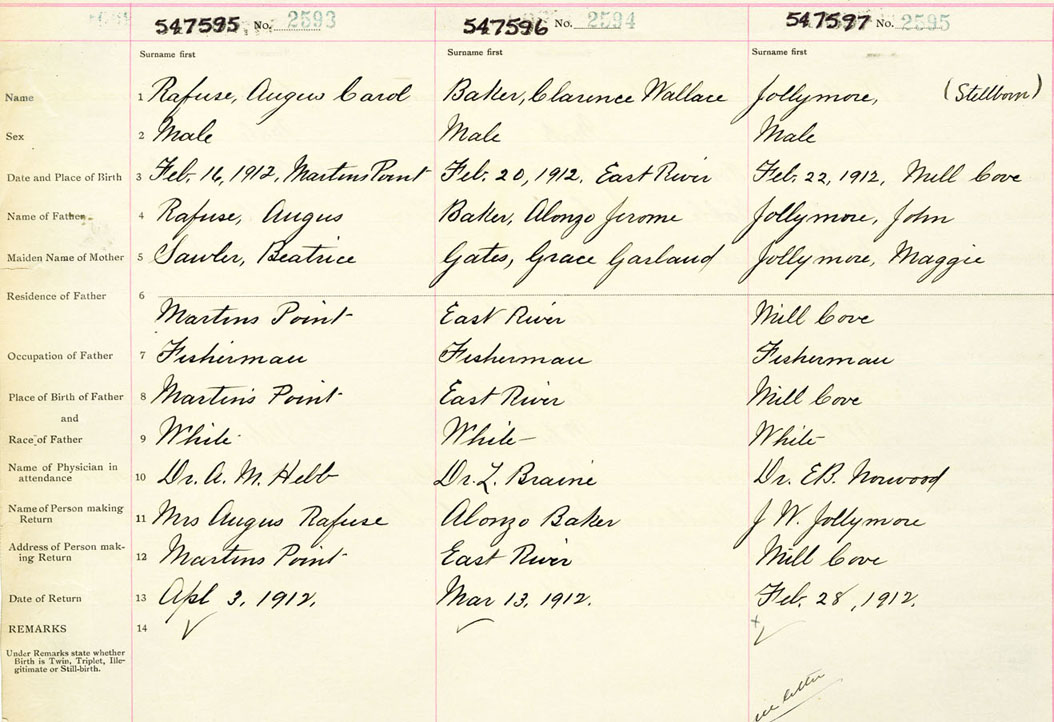 547595 No. 2593 547596 No. 2594 547597 No. 2595
Surname first Surname first Surname first
Name 1 Rafuse, Angus Carol Baker, Clarence Wallace Jollymore, (Stillborn)
Sex 2 Male Male Male
Date and Place of Birth 3 Feb. 16, 1912, Martins Point Feb. 20, 1912, East River Feb. 22, 1912, Mill Cove
Name of Father 4 Rafuse, Angus Baker, Alonzo Jerome Jollymore, John
Maiden Name of Mother 5 Sawler, Beatrice Gates, Grace Garland Jollymore, Maggie
Residence of Father 6
Martins Point East River Mill Cove
Occupation of Father 7 Fisherman Fisherman Fisherman
Place of Birth of Father 8 Martins Point East River Mill Cove
and
Race of Father 9 White White White
Name of Physician in
attendance 10 Dr. A. M. Hebb Dr. L. Braine Dr. E.B. Norwood
Name of Person making
Return 11 Mrs Angus Rafuse Alonzo Baker J W. Jollymore
Address of Person mak-
ing Return 12 Martins Point East River Mill Cove
Date of Return 13 Apl 3, 1912. Mar 13, 1912. Feb. 28, 1912.
REMARKS 14
Under Remarks state whether
Birth is Twin, Triplet, Ille-
gitimate or Still-birth.
letter